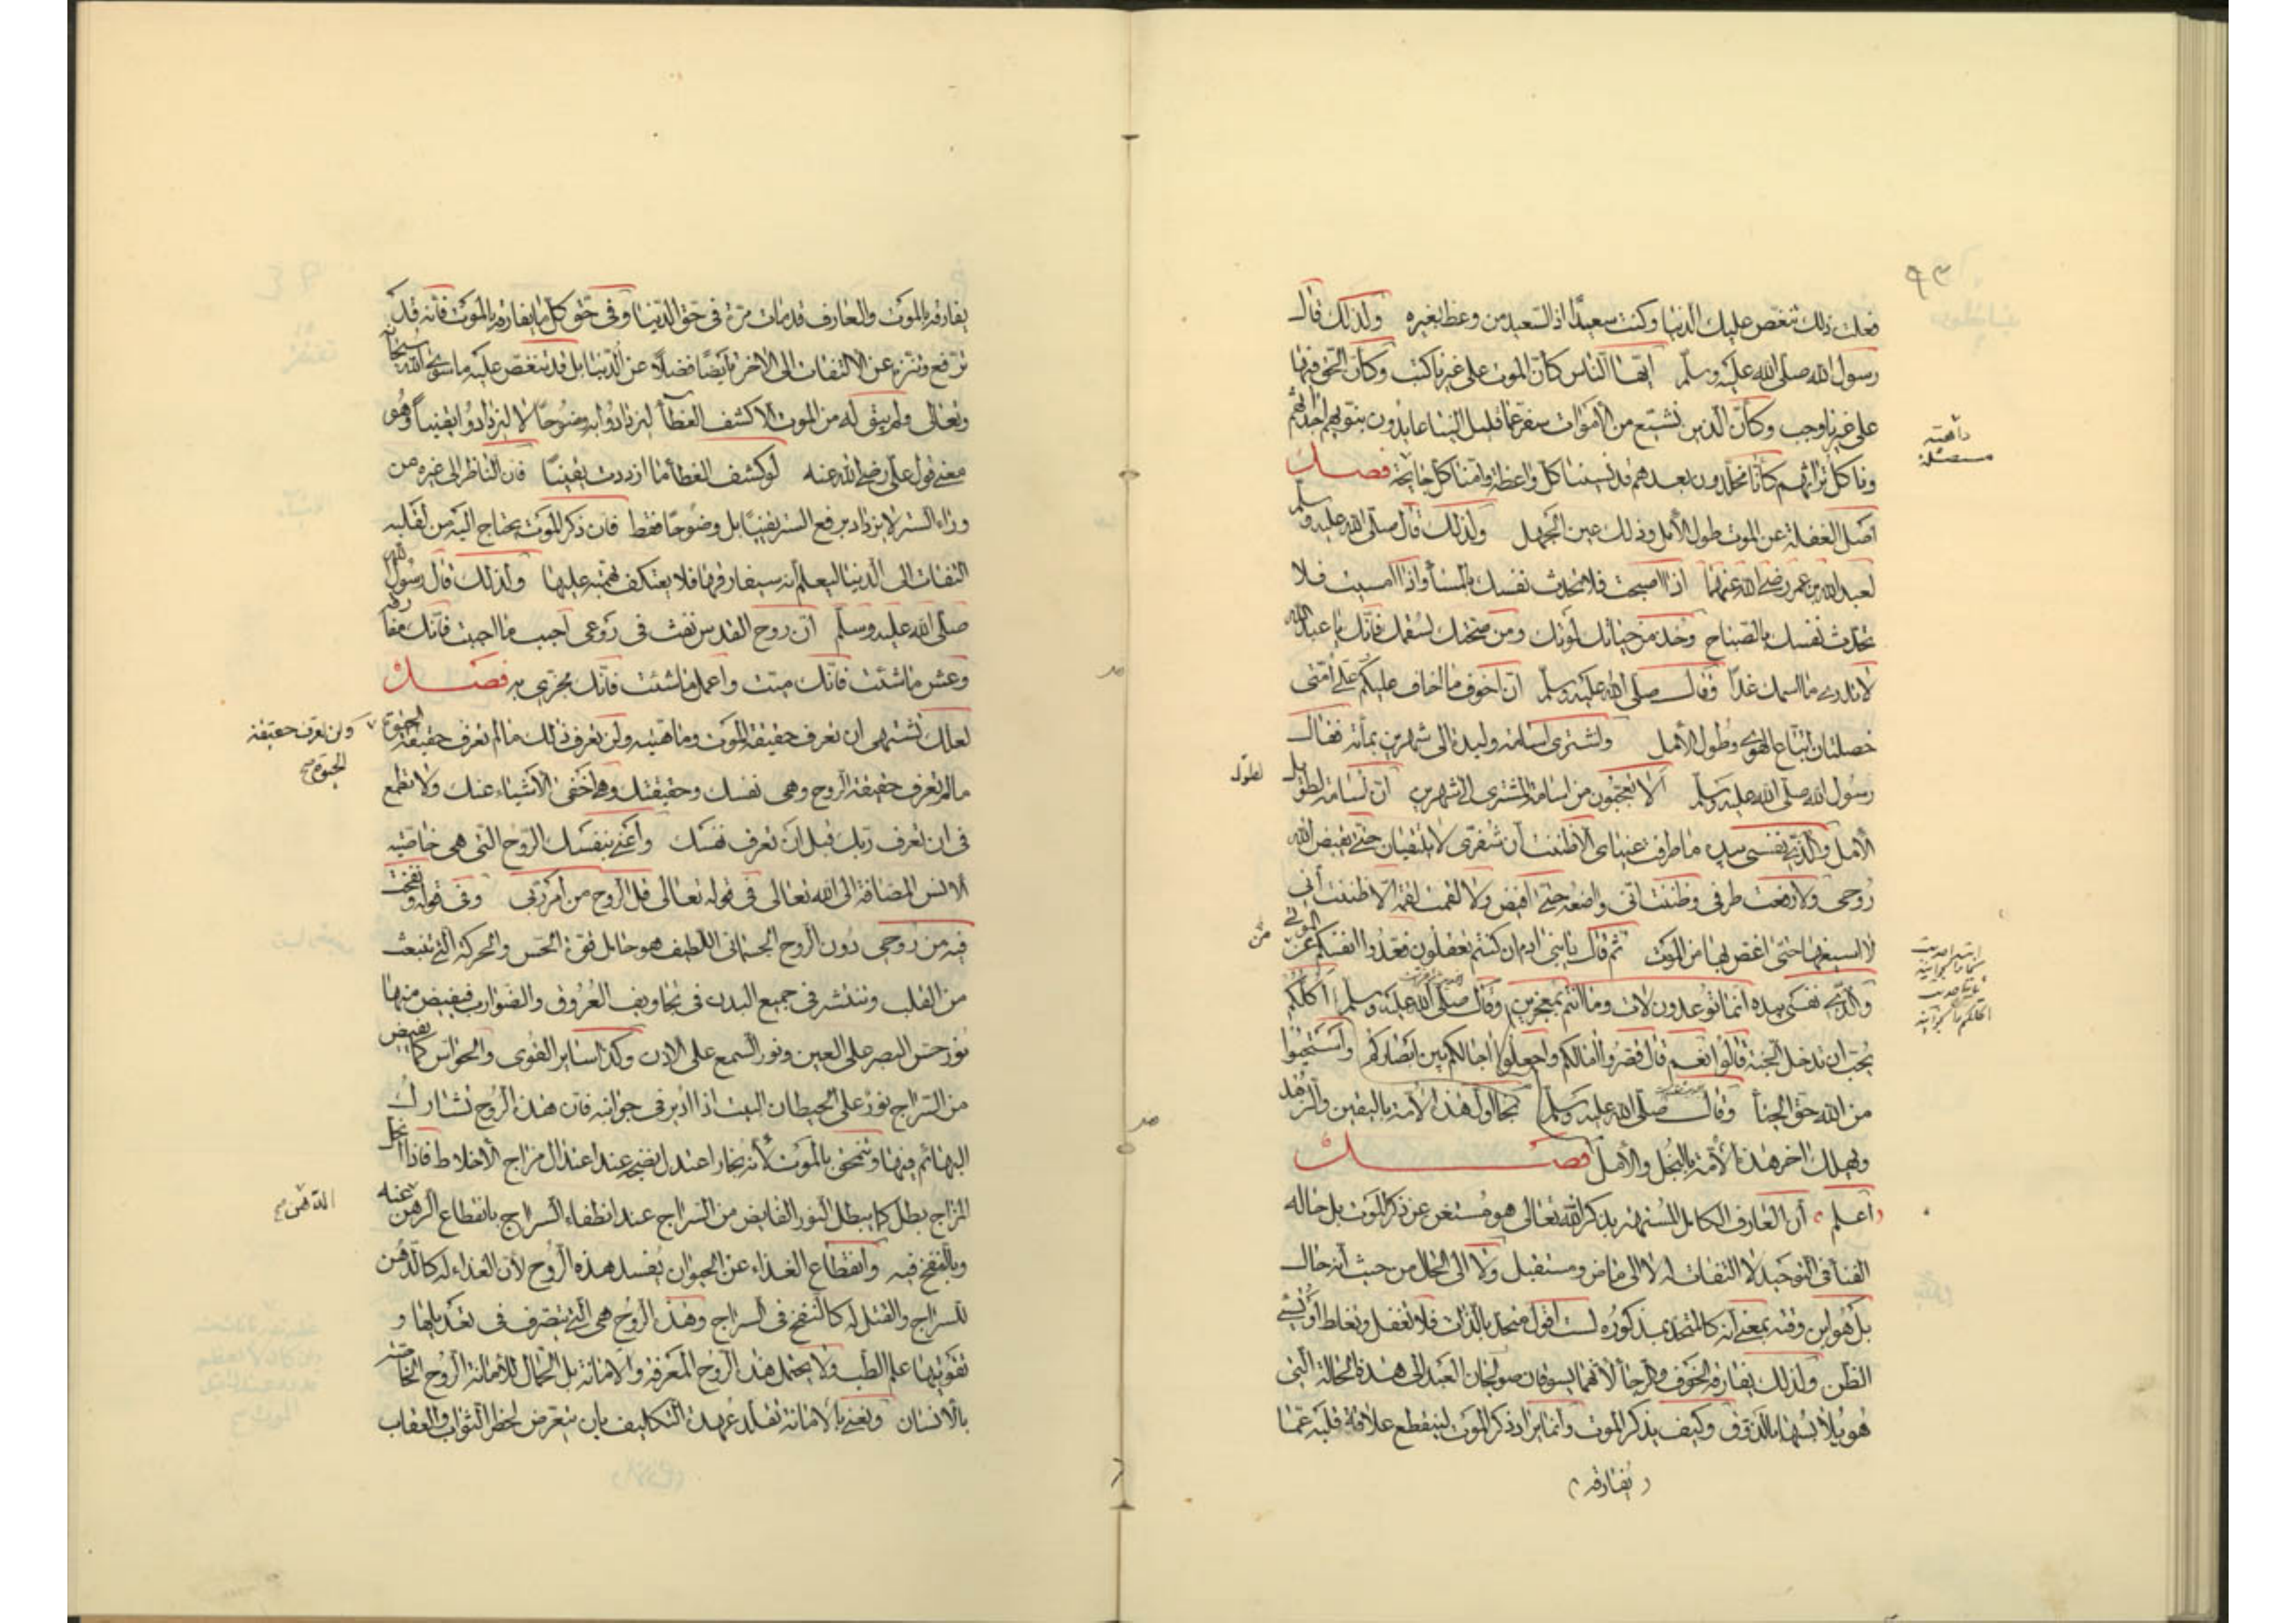 ٩٣
فعلت ذلك تنغص عليك الدنيا وكنت سعيدًا اذ السعيد من وعظ بغيره ولذلك قال
رسول الله صلى الله عليه وسلم ايها الناس كأن الموت على غيرنا كتب وكأن الحق فيها
على غيرنا وجب وكأن الذين نشيّع من الاموات سفر عما قليل الينا عايدون نبوّيهم اجداثهم
وناكل تراثهم كأنا مخلدون بعدهم قد نسينا كل واعظة وامنا كل جايحة فصل
اصل الغفلة عن الموت طول الأمل وذلك عين الجهل ولذلك قال صلى الله عليه وسلم
لعبد الله بن عمر رضي الله عنهما اذا اصبحت فلا تحدث نفسك بالمسأ واذا امسيت فلا
تحدث نفسك بالصباح وخذ من حياتك لموتك ومن صحتك لسقمك فانّك يا عبد الله
لا تدري ما اسمك غدًا وقال صلى الله عليه وسلم انّ اخوف ما اخاف عليكم على امّتى
خصلتان اتباع الهوى وطول الأمل واشترى اسامة وليدة الى شهرين بمأته فقال
رسول الله صلى الله عليه وسلم الا تعجبون من اسامة المشترى الى شهرين ان اسامة لطويل
لطول
الأمل والّذي نفسى بيده ما طرفت عيناى الا ظننت أن شفرى لا يلتقيان حتى يقبض الله
روحى ولا رفعت طرفى وظننت انى واضعه حتى اقبض ولا لقمت لقمة الا ظننت أنى
لا اسيغها حتى اغص بها من الموت ثم قال يا بنى ادم ان كنتم تعقلون فعدّوا انفسكم من الموتى
والذي نفسى بيده انما توعدون لات وما انتم بمعجزين وقال صلى الله عليه وسلم اكلكم
يحب ان يدخل الجنة قالوا نعم قال قصروا آمالكم واجعلوا اجالكم بين ابصاركم واستحيوا
من الله حق الحيأ وقال صلى الله عليه وسلم نجا اول هذه الأمة باليقين والزهد
ويهلك اخر هذه الأمّة بالبخل والأمل فصل
اعلم أن العارف الكامل المستهتر بذكر الله تعالى هو مستغن عن ذكر الموت بل حاله
الفنأ فى التوحيد لا التفات له لا الى ماض ومستقبل ولا الى الحال من حيث انه حال
بل هو ابن وقته بمعنى انه كالمتحد بمذكوره لست اقول متحد بالذات فلا تغفل وتغلط او تسئ
الظن ولذلك يفارقه الخوف والرجأ لأنهما يسوقان العبد الى هذه الحالة التى
هو يلابسها بالذوق وكيف يذكر الموت وانما يراد ذكر الموت لينقطع علاقة قلبه عمّا
يفارقه
يفارقه بالموت والعارف قد مات مرّة فى حق الدّنيا وفى حق كل ما يفارقه بالموت فانه قد
ترفع وتنزه عن الالتفات الى الاخرة ايضًا فضلًا عن الدّنيا بل قد تنغص عليه ما سوى الله سبحانه
وتعالى ولم يبق له من الموت الا كشف الغطأ ليزداد وابه وضوحًا لا ليزدادوا يقينًا وهو
معنى قول علي رضي الله عنه لو كشف الغطأ ما ازددت يقينًا فان الناظر الى غيره من
وراء الستر لا يزداد برفع الستر يقينًا بل وضوحًا فقط فان ذكر الموت يحتاج اليه من لقلبه
التفات الى الدّنيا ليعلم أنه سيفارقها فلا يعتكف بهمّته عليها ولذلك قال رسول الله
صلى الله عليه وسلم ان روح القدس نفث فى روعى احبب ما احببت فانّك مفارقه
وعش ما شئت فانّك ميت واعمل ما شئت فانّك مجزى به فصل
لعلك تشتهى ان تعرف حقيقة الموت وماهيته ولن تعرف ذلك مالم تعرف حقيقة الحيوة
ولن تعرف حقيقة الحيوة صح
مالم تعرف حقيقة الروح وهى نفسك وحقيقتك وهى اخفى الأشياء عنك ولا تطمع
فى ان تعرف ربك قبل أن تعرف نفسك وأعنى بنفسك الروح التى هى خاصّية
الانس المضافة الى الله تعالى فى قوله تعالى قل الروح من أمر ربى وفى قوله ونفخت
فيه من روحى دون الروح الجسمانى اللطيف هو حامل قوّة الحس والحركة التى تنبعث
من القلب وتنتشر فى جميع البدن فى تجاويف العروق والضوارب فيفيض منها
نور حسّ البصر على العين ونور السمع على الاذن وكذا ساير القوى والحواس كما يفيض
من السّراج نور على حيطان البيت اذا ادير فى جوانبه فان هذه الروح تشارك
البهائم فيها وتنمحق بالموت لأنه بخار اعتدل نضجه عند اعتدال مزاج الأخلاط فاذا انحل
المزاج بطل كما يبطل النور الفايض من السّراج عند انطفاء السراج بانقطاع الدهن عنه
الدّهن صح
وبالنفخ فيه وانقطاع الغذاء عن الحيوان يفسد هذه الروح لأن الغذاء له كالدّهن
للسراج والقتل له كالنفخ فى السراج وهذه الروح هى التى يتصرف فى تعديلها و
تقويتها علم الطب ولا يحتمل هذه الروح المعرفة والامانة بل الحمّال للأمانة الروح الخاصّة
بالانسان ونعنى بالامانة تقلد عهدة التكليف بان يتعرض لخطر الثواب والعقاب